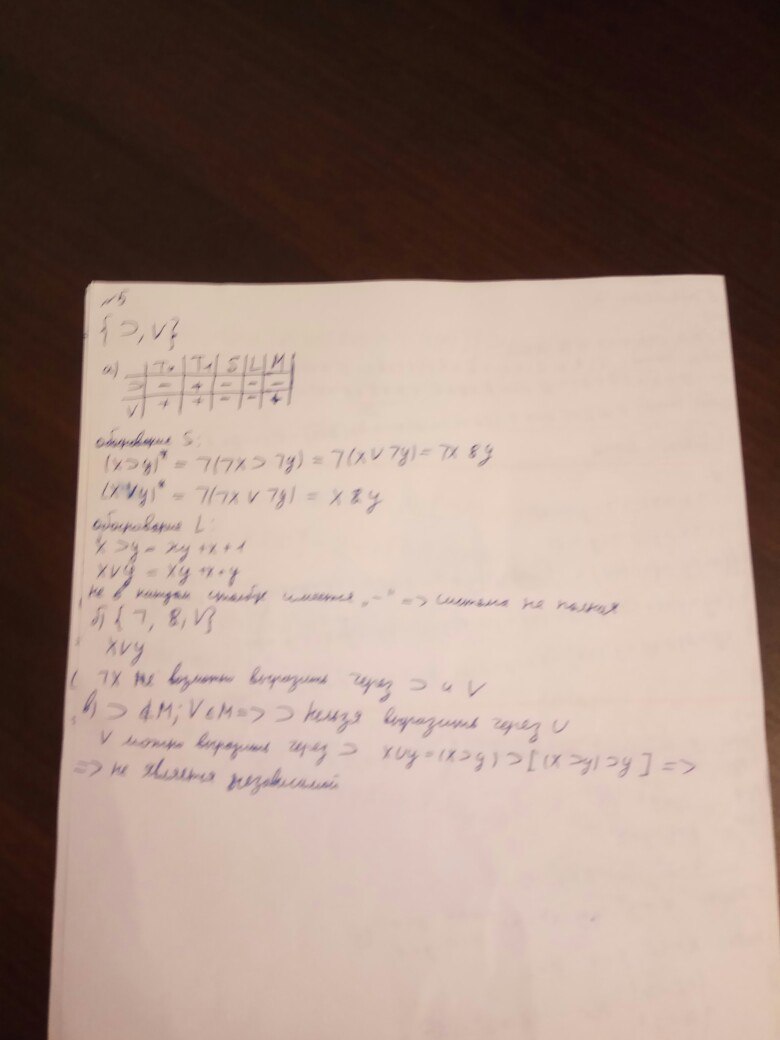 №5
{⊃, V}
а) | T₀ | T₁ | S | L | M
⊃ | - | + | - | - | -
V | + | + | - | - | +
обоснование S:
(x⊃y)* = 7(7x ⊃ 7y) = 7(x V 7y) = 7x & y
(x V y)* = 7(7x V 7y) = x & y
обоснование L:
x ⊃ y = xy + x + 1
x V y = xy + x + y
не в каждом столбце имеется „-" => система не полная
б) {7, &, V}
x V y
7x не возможно выразить через ⊃ и V
в) ⊃ ∉ M; V ∈ M => ⊃ нельзя выразить через U
V можно выразить через ⊃ x U y = (x ⊃ y) ⊃ [(x ⊃ y) ⊃ y] =>
=> не является независимой